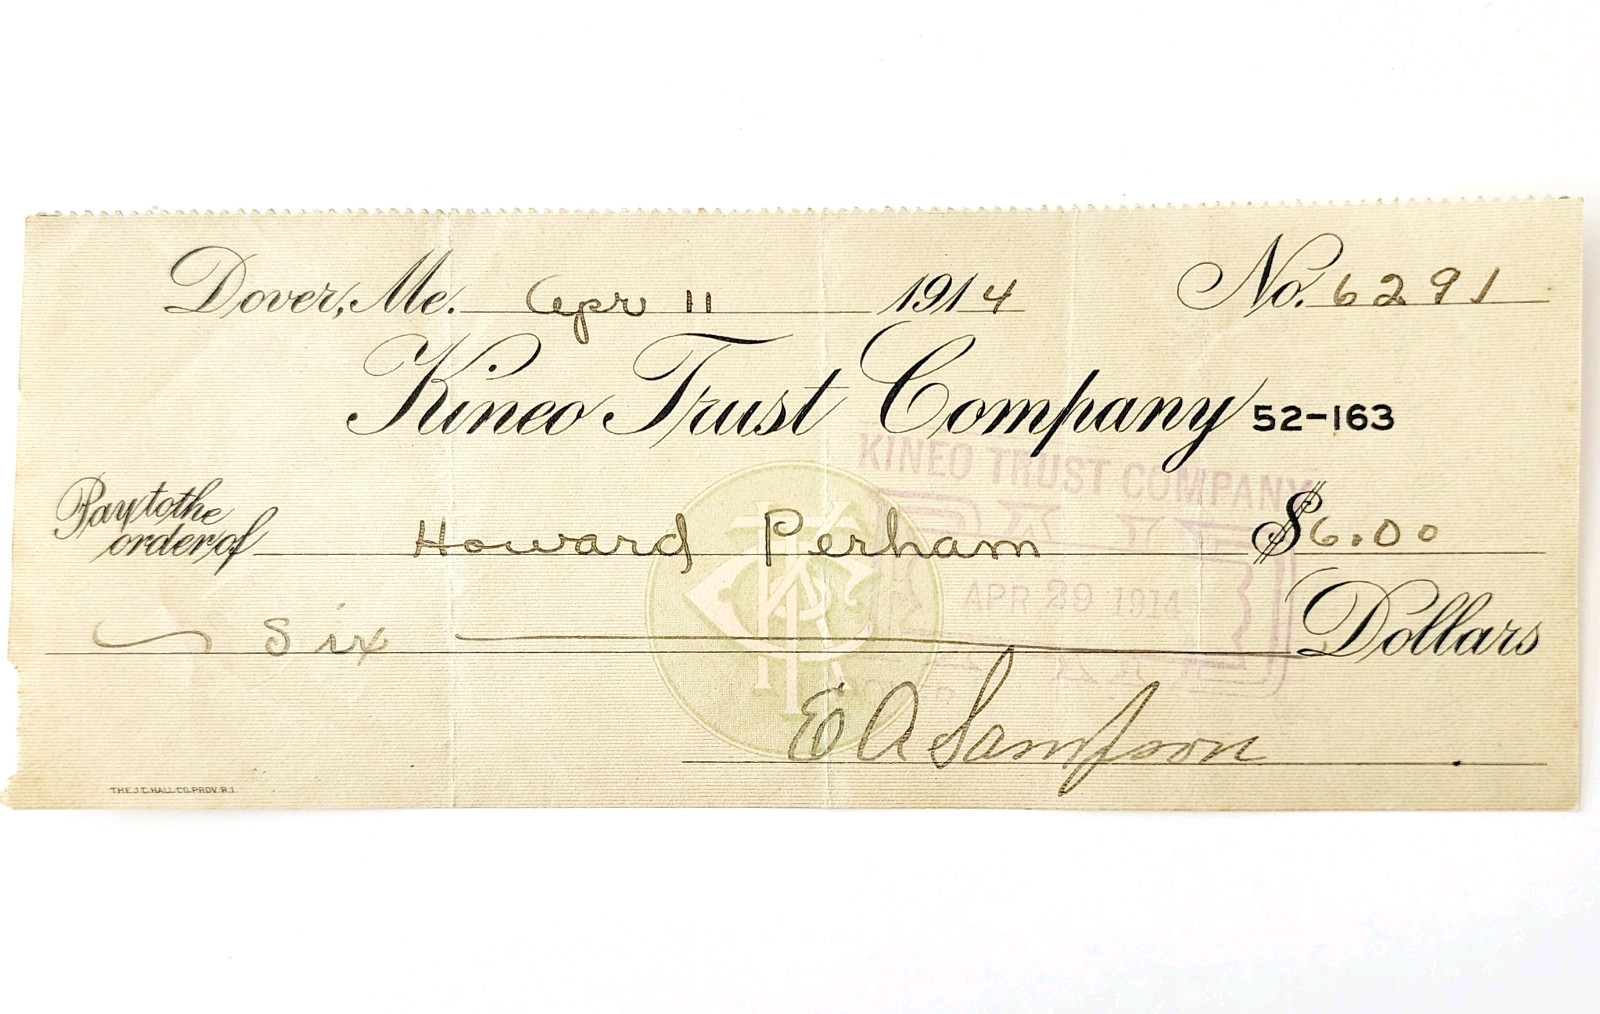 Dover, Me. Apr 11 1914 No. 6291
Kineo Trust Company 52-163
KINEO TRUST COMPANY
Pay to the order of Howard Perham $6.00
PAID
APR 29 1914
Six Dollars
DOVER
E A Sampson
THE J.C. HALL CO. PROV. R.I.